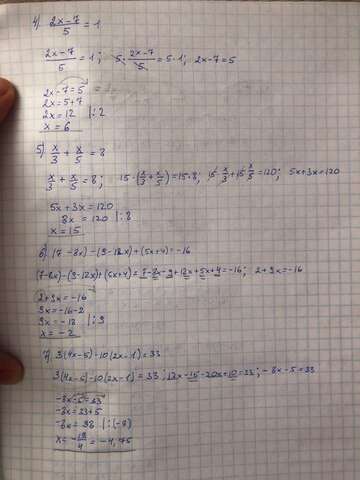 4) (2x-7)/5 = 1
(2x-7)/5 = 1; 5·(2x-7)/5 = 5·1; 2x-7=5
2x-7=5
2x=5+7
2x=12 |:2
x=6
5) x/3 + x/5 = 8
x/3 + x/5 = 8; 15·(x/3 + x/5) = 15·8; 15 x/3 + 15 x/5 = 120; 5x+3x=120
5x+3x=120
8x=120 |:8
x=15
6) (7-8x)-(9-12x)+(5x+4)=-16
(7-8x)-(9-12x)+(5x+4)=7-8x-9+12x+5x+4=-16; 2+9x=-16
2+9x=-16
9x=-16-2
9x=-18 |:9
x=-2
7) 3(4x-5)-10(2x-1)=33
3(4x-5)-10(2x-1)=33; 12x-15-20x+10=33; -8x-5=33
-8x-5=33
-8x=33+5
-8x=38 |:(-8)
x=-19/4=-4,75